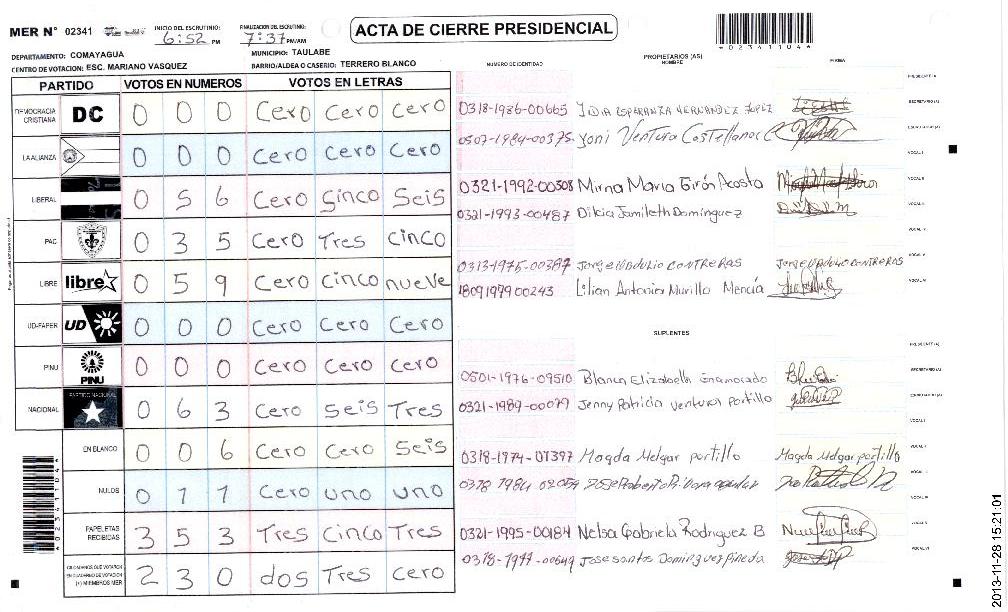 MER N° 02341 INICIO DEL ESCRUTINIO: 6:52 PM FINALIZACION DEL ESCRUTINIO: 7:37 PM/AM ACTA DE CIERRE PRESIDENCIAL
*02341104*
DEPARTAMENTO: COMAYAGUA MUNICIPIO: TAULABE
CENTRO DE VOTACION: ESC. MARIANO VASQUEZ BARRIO/ALDEA O CASERIO: TERRERO BLANCO
PARTIDO VOTOS EN NUMEROS VOTOS EN LETRAS
DEMOCRACIA CRISTIANA DC 0 0 0 Cero Cero Cero
LA ALIANZA 0 0 0 Cero Cero Cero
LIBERAL 0 5 6 Cero Sinco Seis
PAC 0 3 5 Cero Tres Cinco
LIBRE libre 0 5 9 Cero Cinco nueve
UD-FAPER UD 0 0 0 Cero Cero Cero
PINU PINU 0 0 0 Cero Cero Cero
NACIONAL PARTIDO NACIONAL 0 6 3 Cero Seis Tres
EN BLANCO 0 0 6 Cero Cero Seis
NULOS 0 1 1 Cero uno uno
PAPELETAS RECIBIDAS 3 5 3 Tres Cinco Tres
CIUDADANOS QUE VOTARON EN CUADERNO DE VOTACION (+) MIEMBROS MER 2 3 0 dos Tres Cero
*02341104*
NUMERO DE IDENTIDAD PROPIETARIOS (AS) NOMBRE FIRMA
PRESIDENTE(A)
0318-1986-00665 HERNANDEZ LOPEZ SECRETARIO(A)
0507-1984-00375 Yoni Ventura Castellanos ESCRUTADOR(A)
VOCAL I
0321-1992-00308 Mirna Maria Girón Acosta VOCAL II
0321-1993-00487 Dilcia Jamileth Dominguez VOCAL III
VOCAL IV
0313-1975-00387 CONTRERAS VOCAL V
1809197900243 Lilian Antonia Murillo Mencía VOCAL VI
SUPLENTES
PRESIDENTE(A)
0501-1976-09510 Blanca Elizabeth Enamorado SECRETARIO(A)
0321-1989-00079 Jenny Patricia Ventura Portillo ESCRUTADOR(A)
VOCAL I
0318-1974-01397 Magda Melgar portillo Magda Melgar portillo VOCAL II
Jose Roberto
0321-1995-00184 Nelsa Gabriela Rodriguez B VOCAL V
Jose santos Dominguez Pineda VOCAL VI
2013-11-28 15:21:01